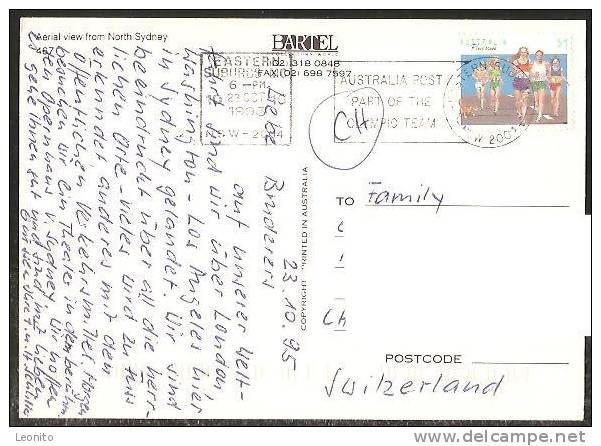 Aerial view from North Sydney
467
BARTEL
(02) 318 0848
FAX (02) 698 7597
EASTERN
SUBURBS
6 - PM
23 OCT
1995
N.S.W - 2004
AUSTRALIA POST
PART OF THE
OLYMPIC TEAM
AUSTRALIA
$1
CH
23.10.95
Liebe
auf unserer Welt-
sind wir über London,
Washington - Los Angeles hier
in Sydney gelandet. Wir sind
beeindruckt über all die herr-
lichen Orte - vieles wird zu Fuss
erkundet anderes mit den
öffentlichen Verkehrsm.
besuchen wir ein Theater in dem berühm-
ten Opernhaus v. Sydney. Wir hoffen
es gehe Ihnen gut und sind mit lieben
COPYRIGHT PRINTED IN AUSTRALIA
TO Family
CH
POSTCODE
Switzerland
Leonito
delcampe.net